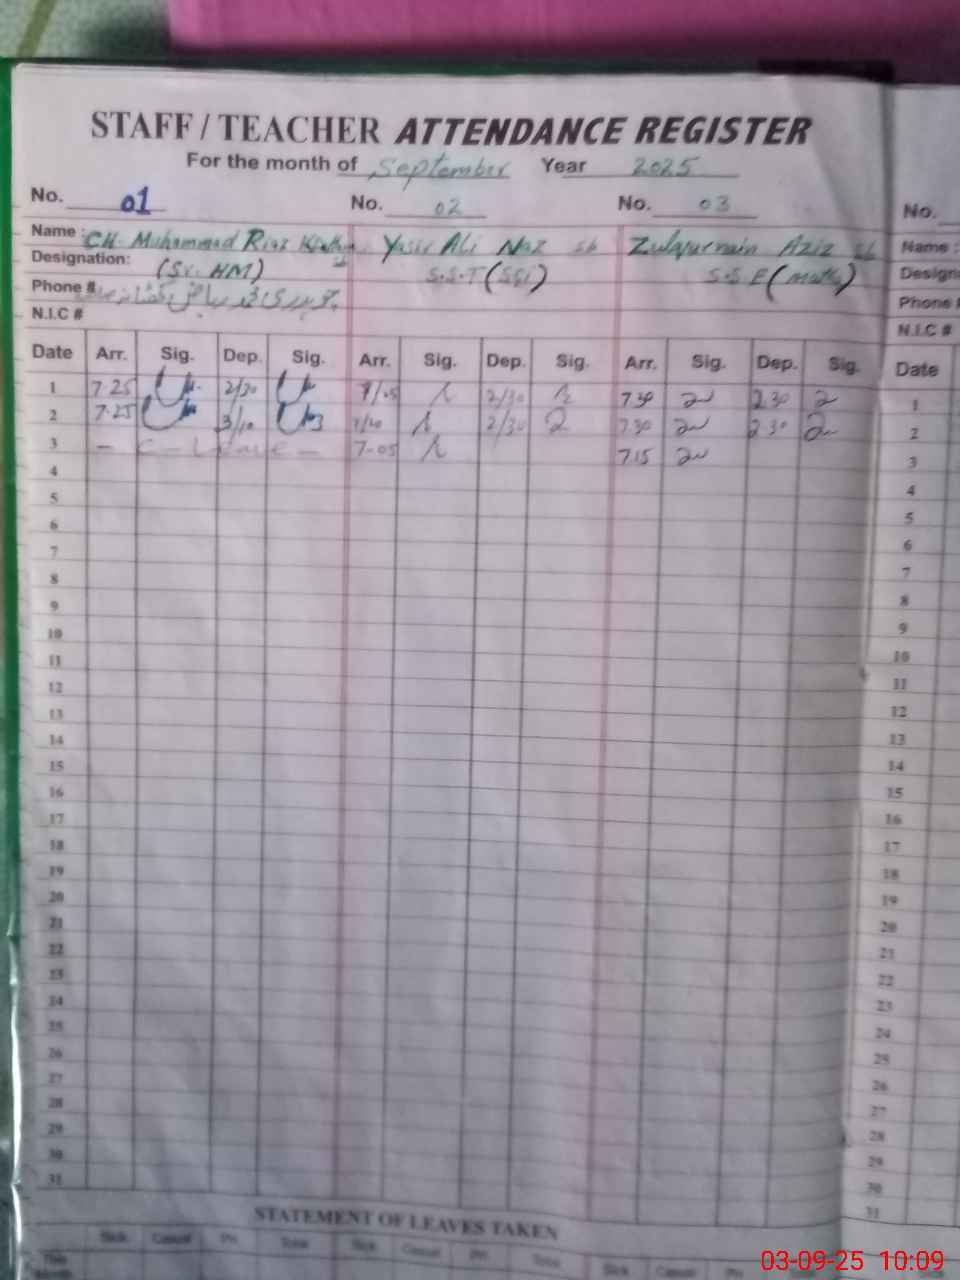 STAFF / TEACHER ATTENDANCE REGISTER
For the month of September Year 2025
No. 01 No. 02 No. 03 No.
Name : CH. Muhammad Riaz Yasir Ali Naz sb Zulqurnain Aziz sb Name :
Designation: (Sr. HM) S.S.T (SSi) S.S.E (math) Design
Phone # Phone
N.I.C # N.I.C #
Date Arr. Sig. Dep. Sig. Arr. Sig. Dep. Sig. Arr. Sig. Dep. Sig. Date
1 7-25 2/30 7/05 2/30 7 30 2 30 1
2 7-25 3/10 2/30 7 30 2 30 2
3 - C - Leave - 7-05 7 15 3
4 4
5 5
6 6
7 7
8 8
9 9
10 10
11 11
12 12
13 13
14 14
15 15
16 16
17 17
18 18
19 19
20 20
21 21
22 22
23 23
24 24
25 25
26 26
27 27
28 28
29 29
30 30
31 31
STATEMENT OF LEAVES TAKEN
Sick Casual Pri Total Sick Casual Pri Total Sick Casual Pri
This
03-09-25 10:09